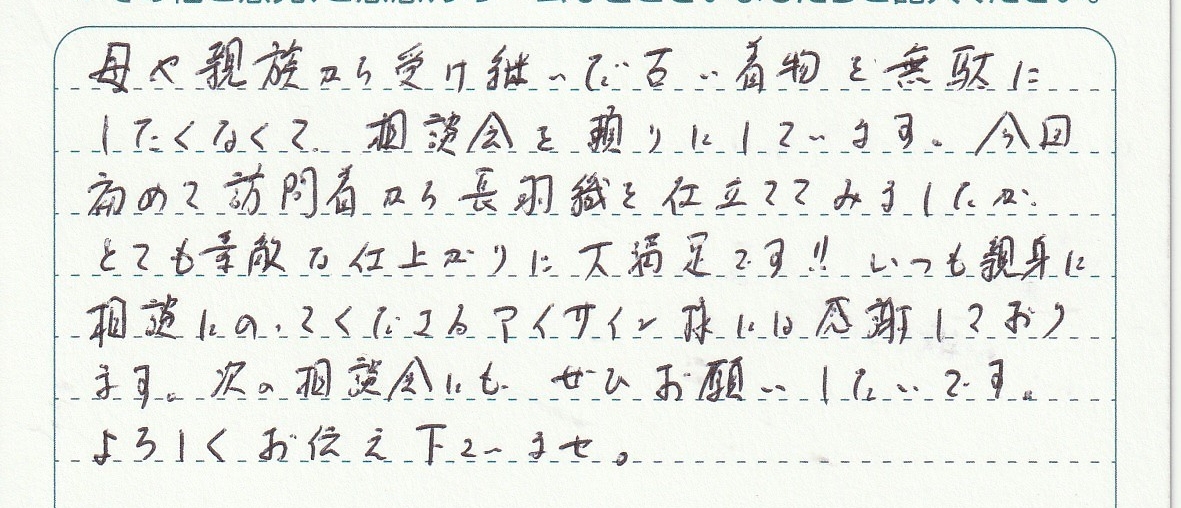 母や親族から受け継いだ古い着物を無駄に
したくなくて、相談会を頼りにしています。今回
初めて訪問着から長羽織を仕立ててみましたが、
とても素敵な仕上がりに大満足です!! いつも親身に
相談にのってくださるアイサイン様には感謝しており
ます。次の相談会にも、ぜひお願いしたいです。
よろしくお伝え下さいませ。